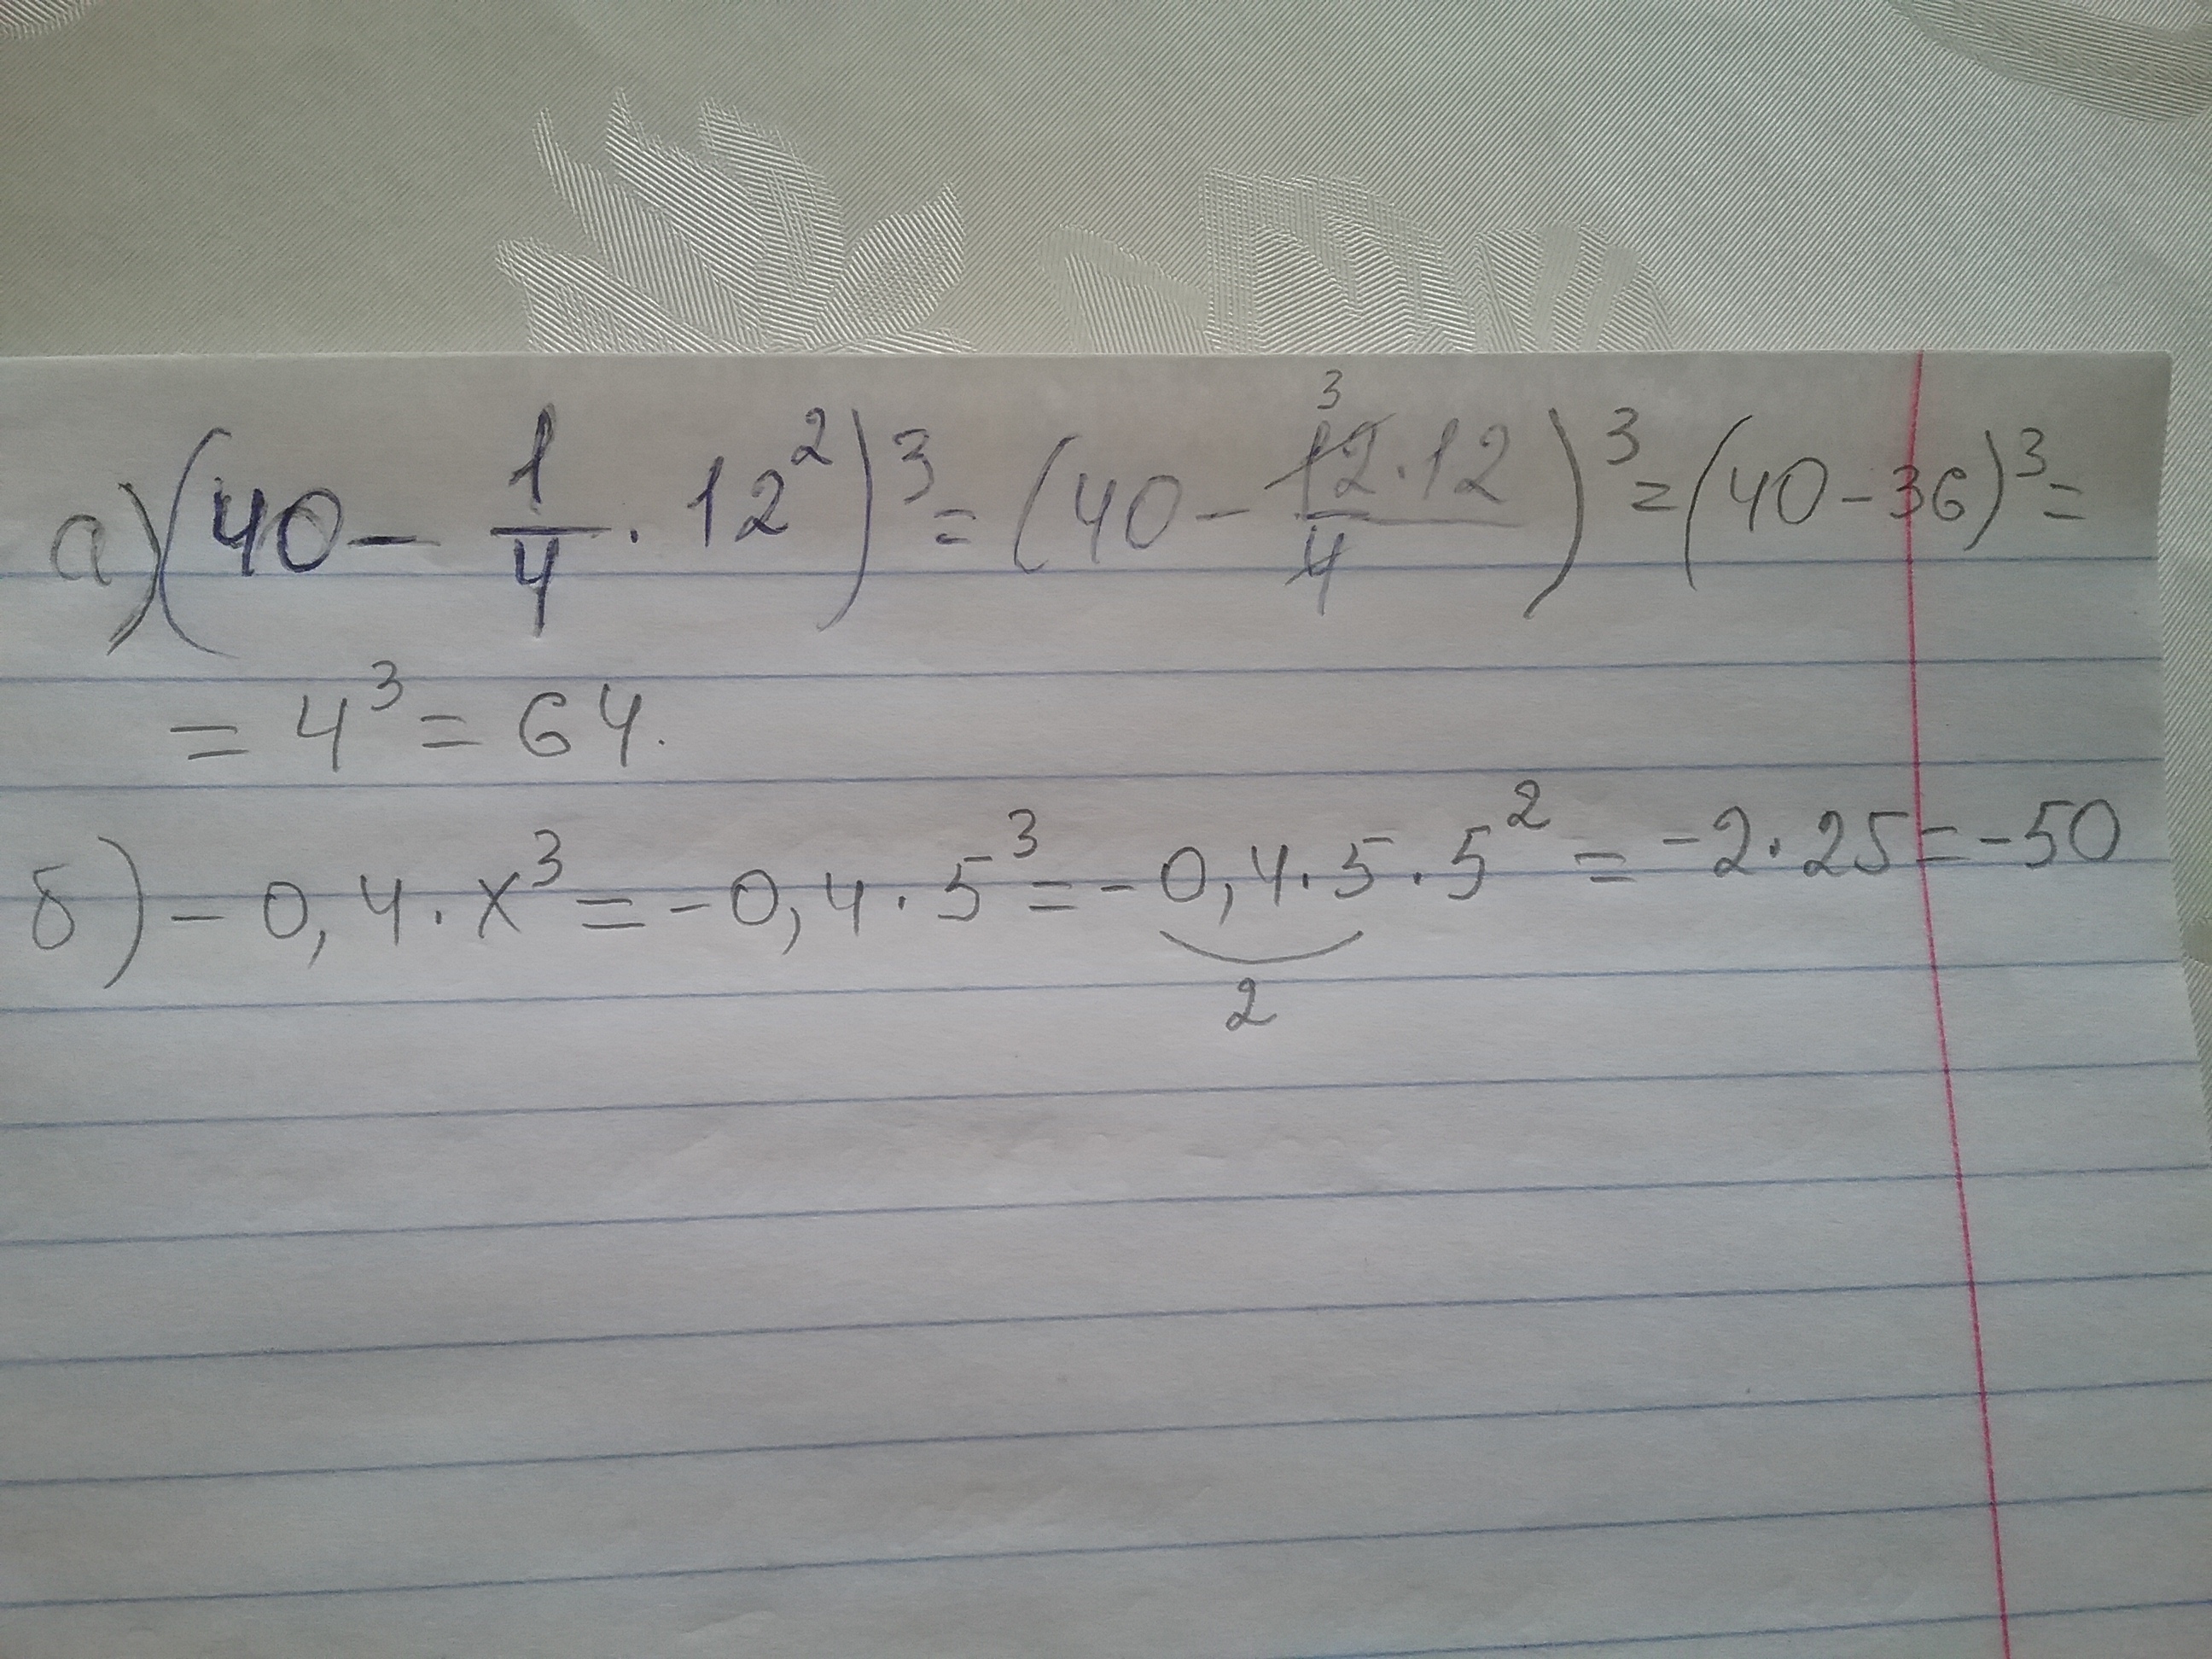 а) (40 - 1/4 · 12²)³ = (40 - 12·12/4)³ = (40 - 36)³ =
3
= 4³ = 64.
б) - 0,4 · x³ = - 0,4 · 5³ = - 0,4 · 5 · 5² = - 2 · 25 = - 50
2